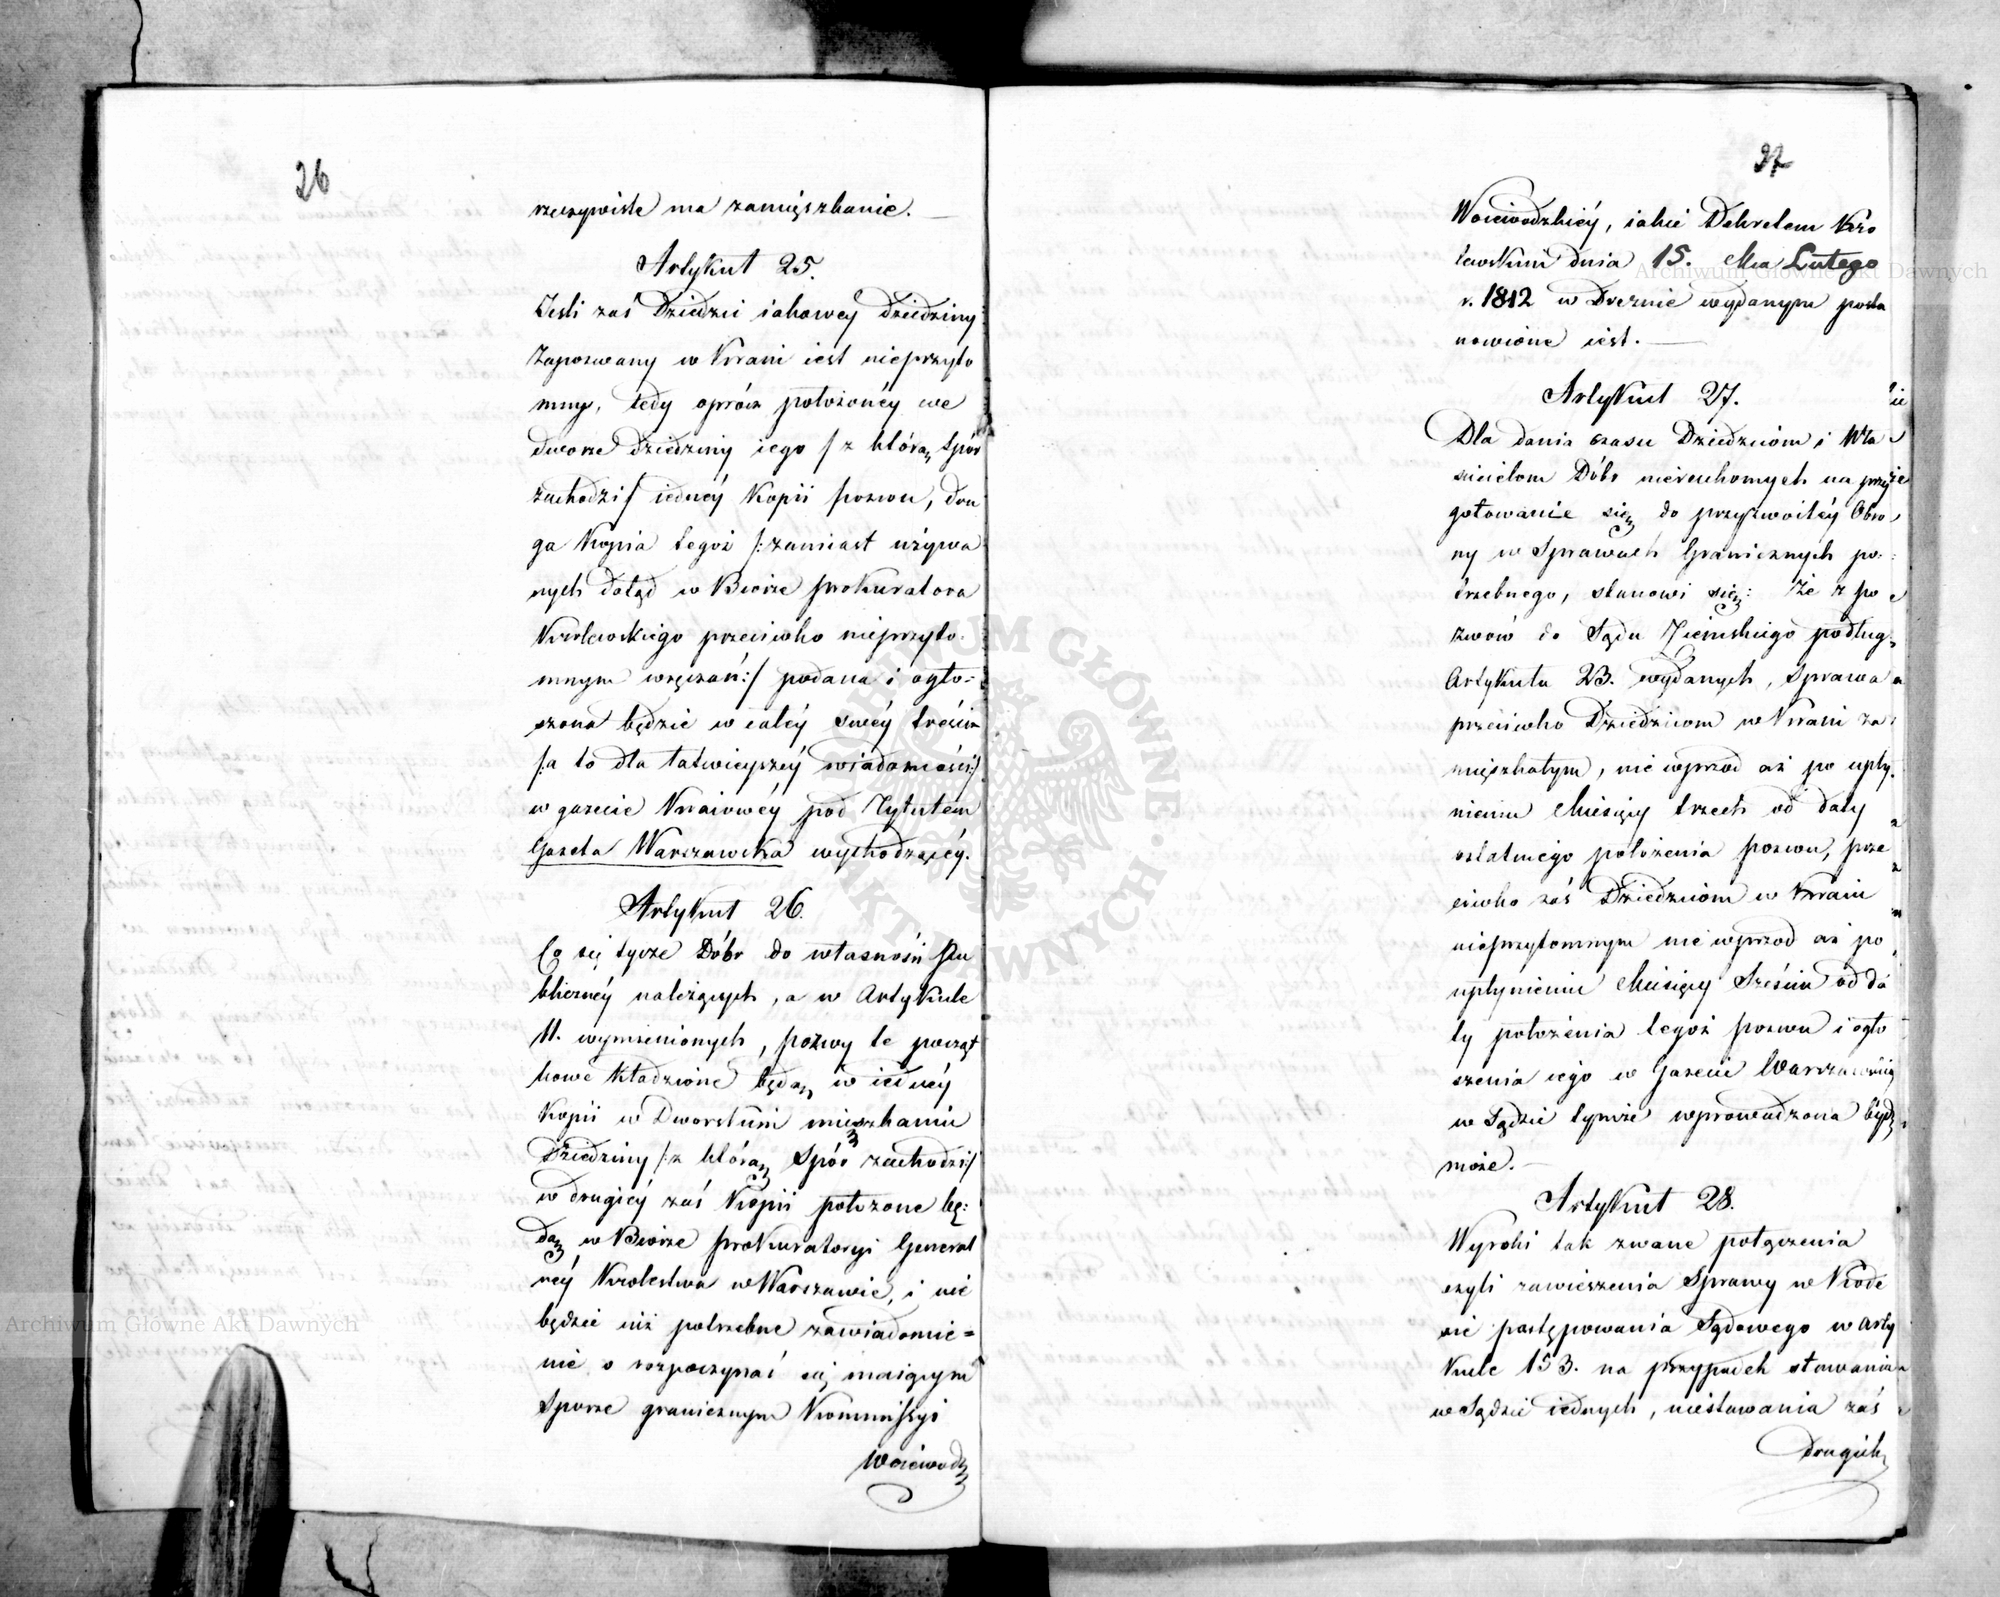 26
rzeczywiste ma zamięszkanie.
Artykuł 25.
Jeśli zaś Dziedzic iakowey dziedziny
Zapozwany w Kraiu iest nieprzyto
mny, tedy oprócz położonéy we
dworze dziedziny iego /z którą Spór
zachodzi/ iednéy Kopii pozwu, dru
ga Kopia tegoż /:zamiast używa
nych dotąd w Biórze prokuratora
Krolewskiego przeciwko nieprzyto
mnym wręczań:/ podana i ogło=
szona będzie w całéy swéy treści
/:a to dla łatwieyszéy wiadomości:/
w gazecie Kraiowéy pod Tytułem
Gazeta Warszawska wychodzącéy.
Artykuł 26.
Co się tycze Dóbr do własnośći Pu
bliczney należących, a w Artykule
11. wymienionych, pozwy te począt
kowe kładzione będą w iednéy
Kopii w Dworskim mieszkaniu
Dziedziny /:z którą Spór zachodzi:/
w drugiéy zaś Kopii położone bę:
dą w Biórze prokuratoryi General
néy Krolestwa w Warszawie, i nie
będzie iuż potrzebne zawiadomie=
nie o rozpoczynać się maiącym
Sporze granicznym Kommissyi
Woiewodz
27
Woiewodzkiéy, iakie Dekretem Kro
lewskim dnia 15. Mca Lutego
r. 1812 w Dreznie wydanym posta
nowione iest.
Artykuł 27.
Dla dania czasu Dziedzicom i Wła
scicielom Dóbr nieruchomych na przy
gotowanie się do przyzwoitéy Obro
ny w Sprawach Granicznych po:
trzebnego, stanowi się: Że z po
zwów do Sądu Ziemskiego podług
Artykułu 23. wydanych, Sprawa
przeciwko Dziedzicom w Kraiu za
mięszkałym, nie wprzod aż po upły.
nieniu Miesięcy trzech od daty
ostatniego położenia pozwu, prze
ciwko zaś Dziedzicom w Kraiu
nieprzytomnym nie wprzod aż po
upłynieniu Miesięcy Sześciu od da
ty położenia tegoż pozwu i ogło
szenia iego w Gazecie Warszawskiey
w Sądzie tymże wprowadzona bydź
może.
Artykuł 28.
Wyroki tak zwane połączenia
czyli zawieszenia Sprawy w Kode
xie postępowania Sądowego w Arty
kule 153. na przypadek stawania
w Sądzie iednych, niestawania zaś
drugich
Archiwum Główne Akt Dawnych
Archiwum Główne Akt Dawnych
ARCHIWUM GŁÓWNE AKT DAWNYCH